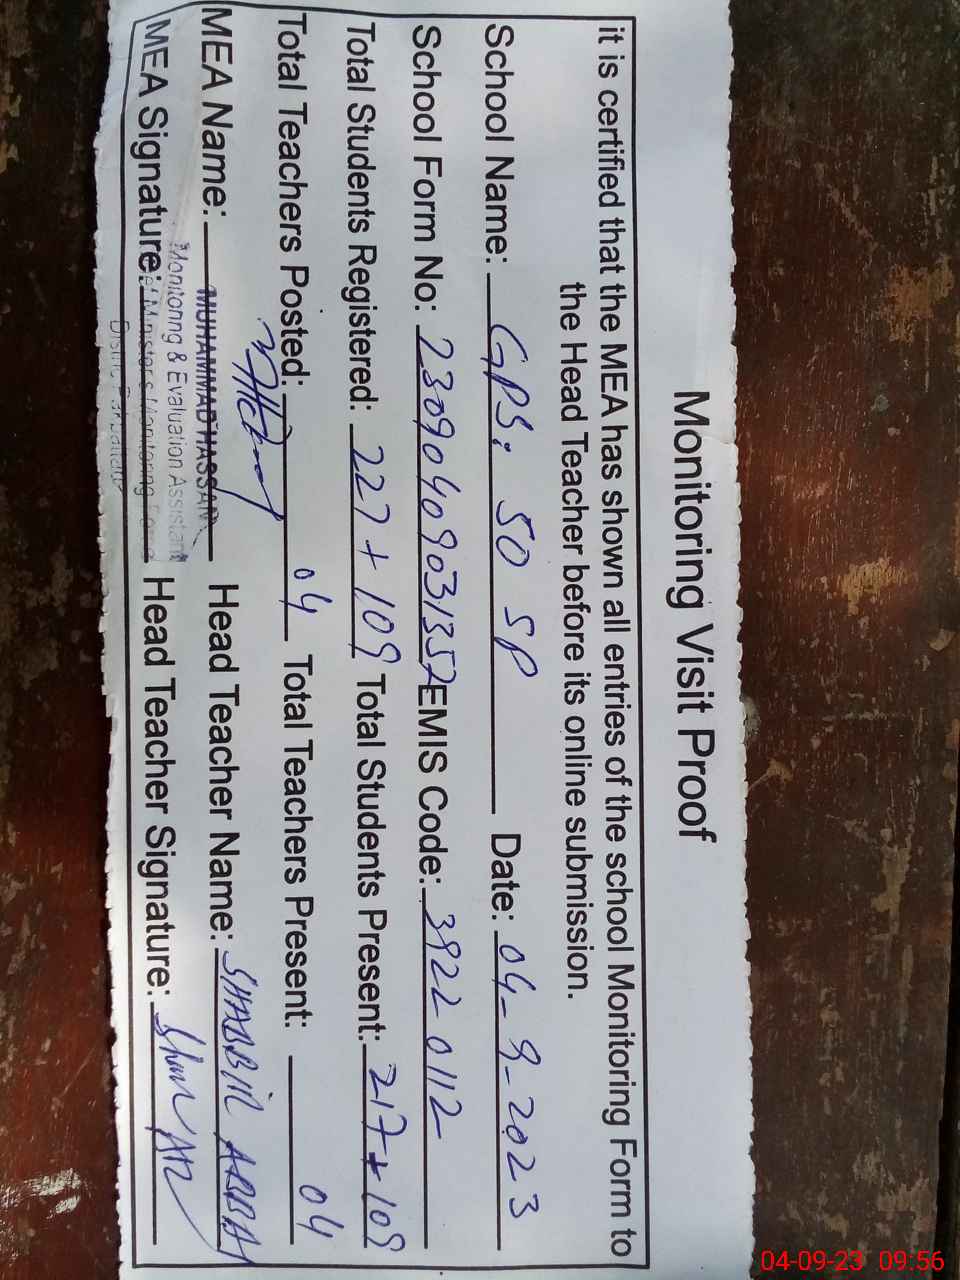 Monitoring Visit Proof
it is certified that the MEA has shown all entries of the school Monitoring Form to
the Head Teacher before its online submission.
School Name: GPS: 50 SP Date: 04-9-2023
School Form No: 23090409031352 EMIS Code: 39220112
Total Students Registered: 227+109 Total Students Present: 217+109
Total Teachers Posted: 04 Total Teachers Present: 04
MEA Name: MUHAMMAD HASSAN Head Teacher Name: SHABBIR ABBAS
Monitoring & Evaluation Assistant
MEA Signature: Head Teacher Signature:
Minister's Monitoring Force
District Pakpattan
04-09-23 09:56